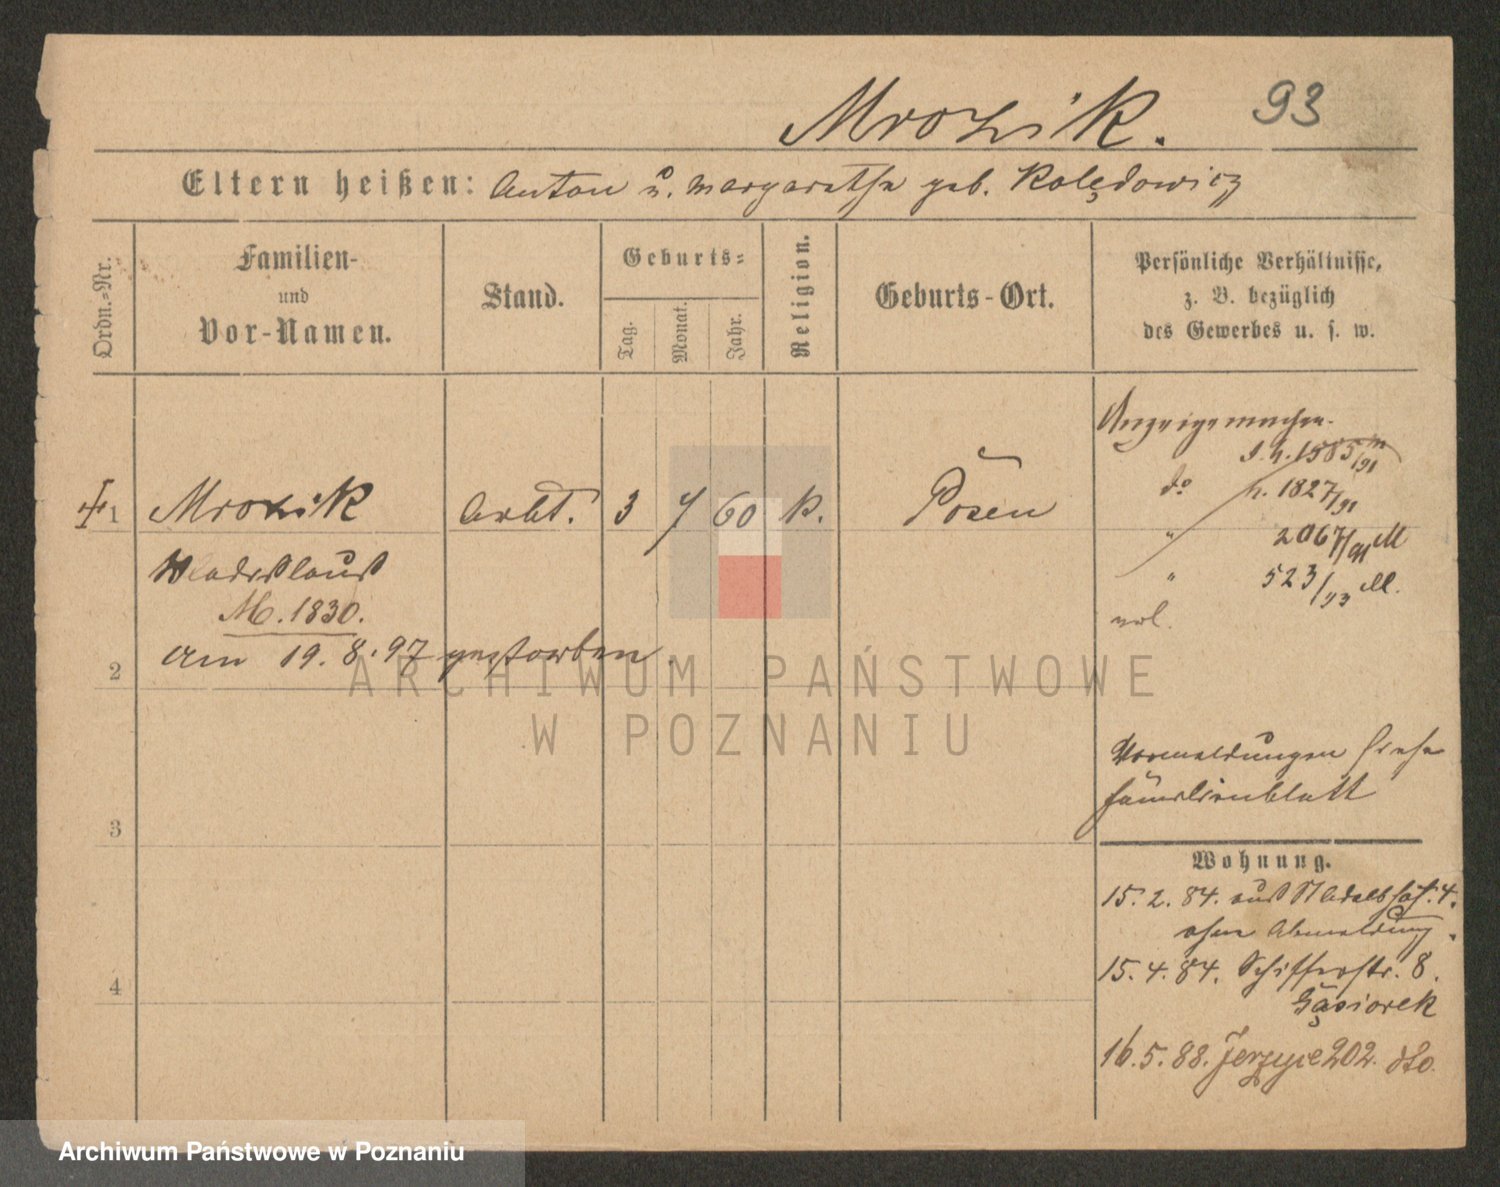 Mrozik.
93
Eltern heißen: Anton u. Margarethe geb. Kolędowicz
Ordn.-Nr.
Familien-
und
Vor-Namen.
Stand.
Geburts-
Tag.
Monat.
Jahr.
Religion.
Geburts-Ort.
Persönliche Verhältnisse,
z. B. bezüglich
des Gewerbes u. s. w.
Anzeige machen.
J. h. 1585/91
do h. 1827/91
" 2067/91 M
" 523/93 M.
1 Mrozik Arbt. 3 7 60 k. Posen
Wladislaus
M. 1830.
2 am 19.8.97 gestorben.
Vormeldungen siehe
Familienblatt
3
Wohnung.
15.2.84. aus
ohne Abmeldung.
15.4.84. Schifferstr. 8.
Gąsiorek
4
16.5.88. Jerzyce 202. dto.
ARCHIWUM PAŃSTWOWE
W POZNANIU
Archiwum Państwowe w Poznaniu